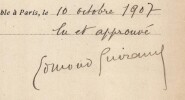 ble à Paris, le 10 octobre 1907
lu et approuvé
Edmond Guiraud